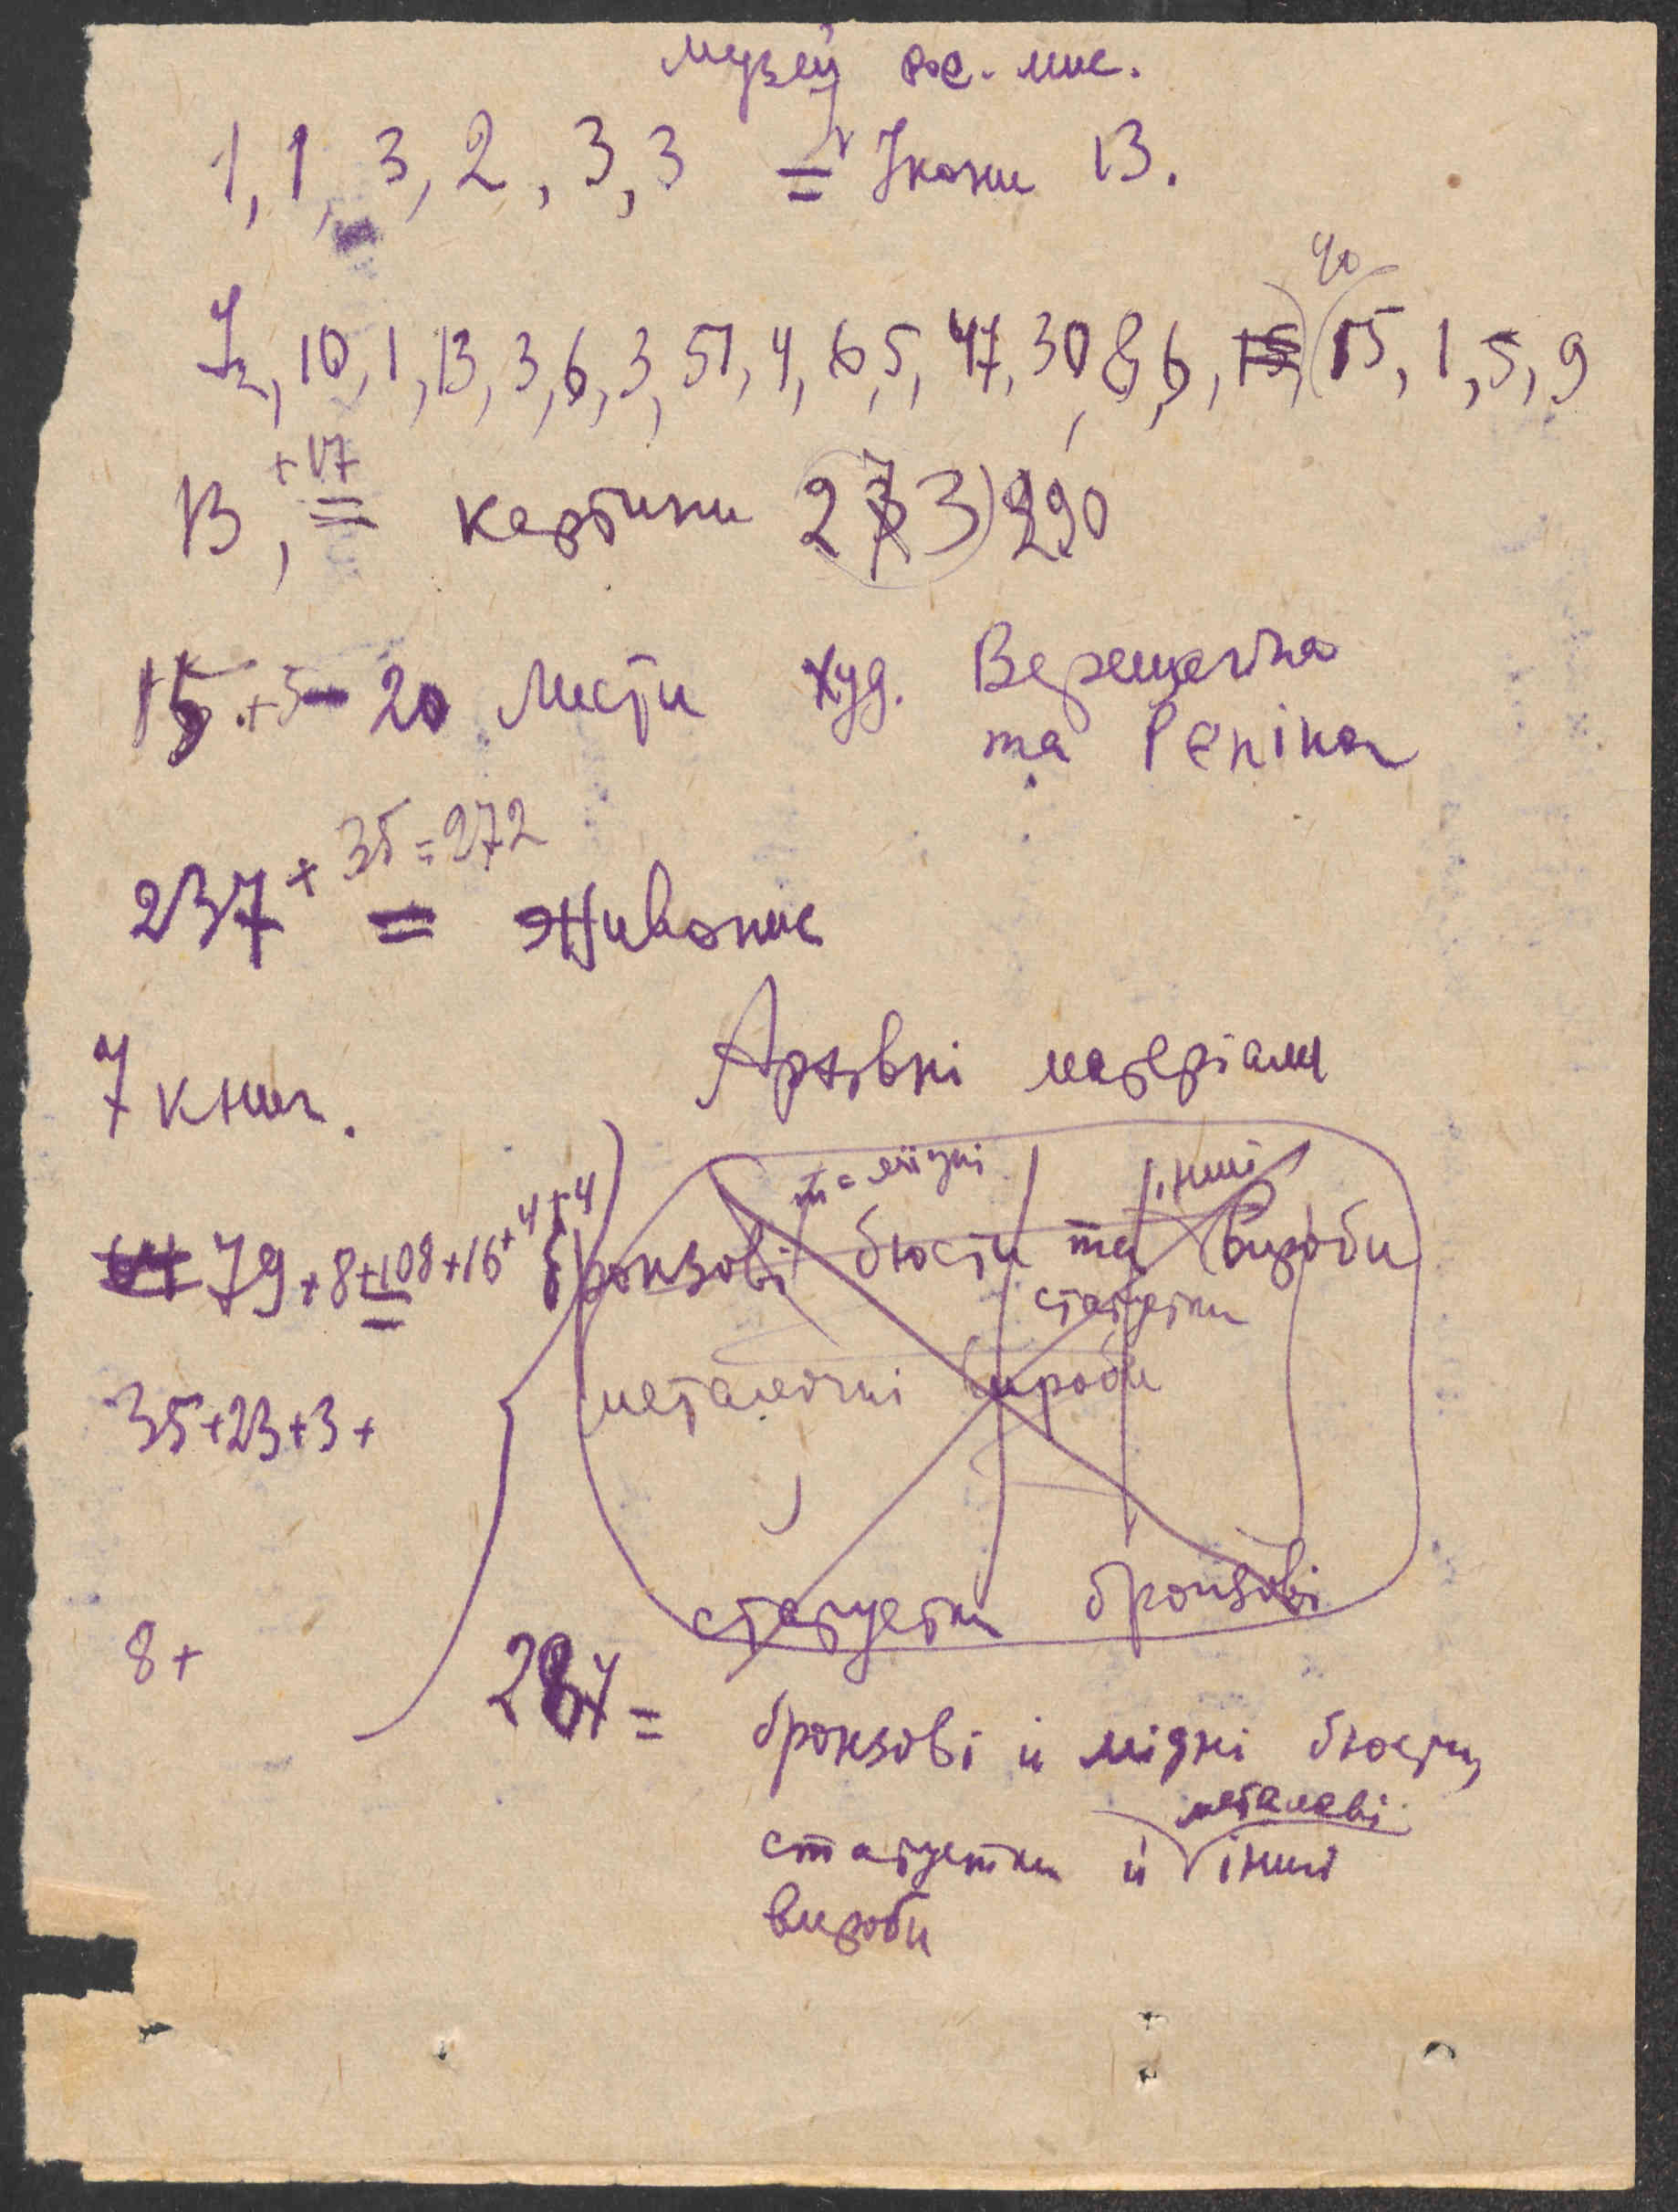 музей рос. мис.
1, 1, 3, 2, 3, 3 = Ікони 13.
40
10, 1, 13, 3, 6, 3, 51, 4, 6, 5, 47, 30, 8, 6, 15, 15, 1, 5, 9
+17
13, = картини 273 290
15 + 5 - 20 листи худ. Верещагіна
та Репіна
+ 35 = 272
237 = живопис
Архівні матеріали
7 книг.
та мідні інші
79 + 8 + 108 + 16 + 4 + 4 бронзові бюсти та вироби
статуетки
металеві вироби
35 + 23 + 3 +
статуетки бронзові
8 +
287 = бронзові й мідні бюсти,
металеві
статуетки й інші
вироби